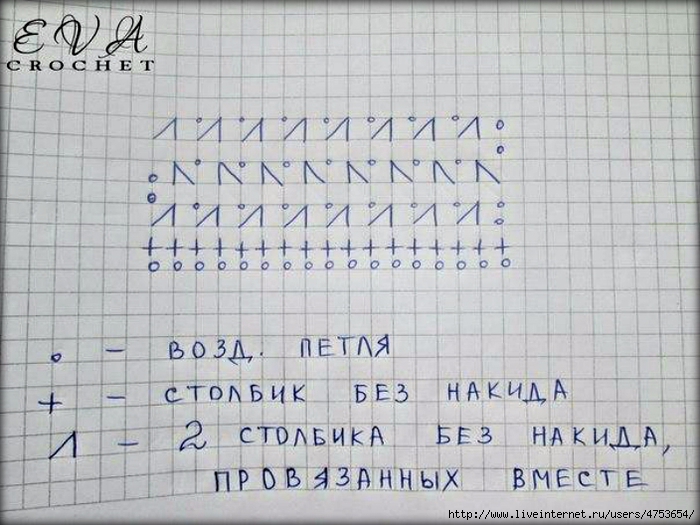 EVA
CROCHET
o – ВОЗД. ПЕТЛЯ
+ – СТОЛБИК БЕЗ НАКИДА
Λ – 2 СТОЛБИКА БЕЗ НАКИДА,
ПРОВЯЗАННЫХ ВМЕСТЕ
http://www.liveinternet.ru/users/4753654/